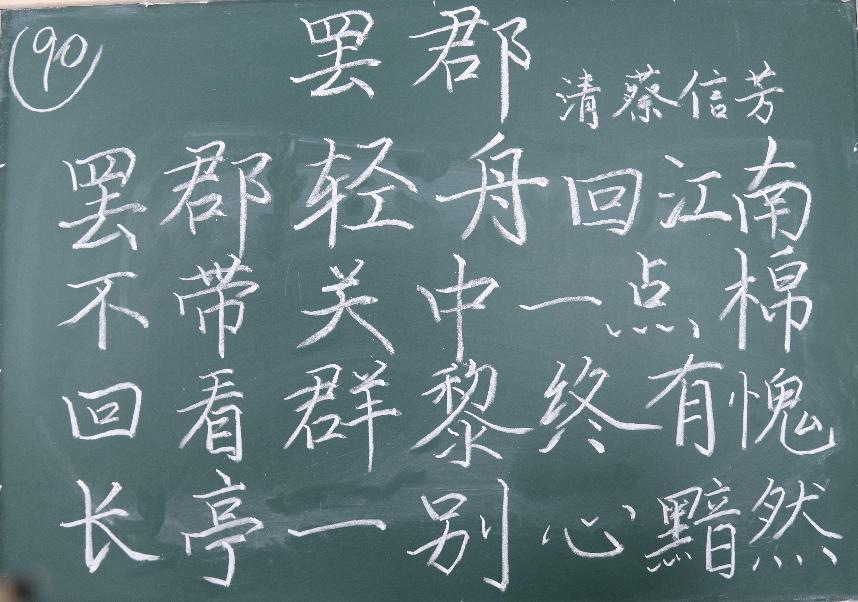 90
罢郡
清蔡信芳
罢郡轻舟回江南
不带关中一点棉
回看群黎终有愧
长亭一别心黯然